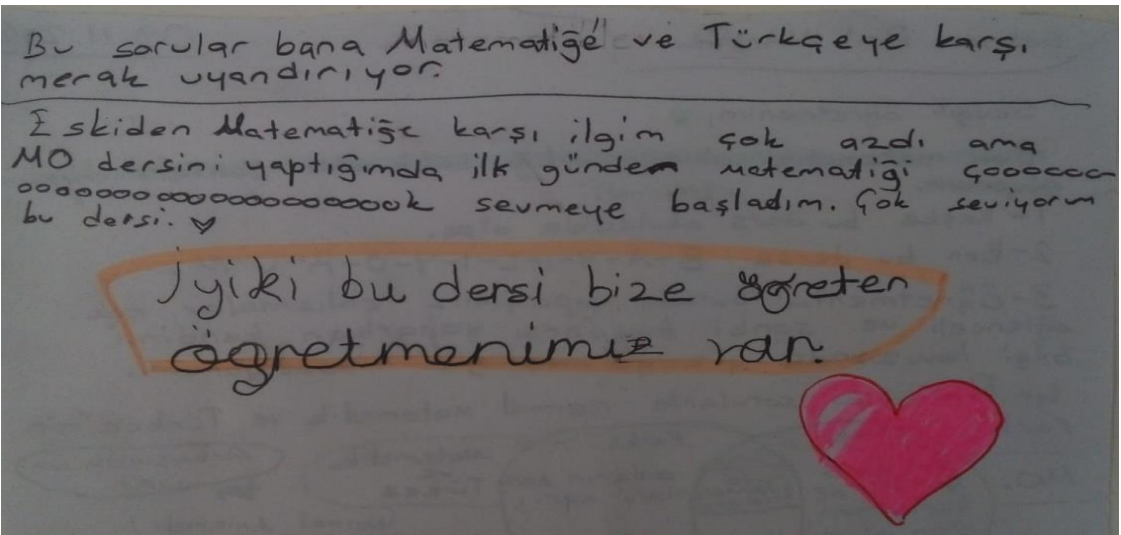 Bu sorular bana Matematiğe ve Türkçeye karşı
merak uyandırıyor.
Eskiden Matematiğe karşı ilgim çok azdı ama
MO dersini yaptığımda ilk günden matematiği çoooooo
ooooooooooooooooook sevmeye başladım. Çok seviyorum
bu dersi. ♡
İyiki bu dersi bize öğreten
öğretmenimiz var.